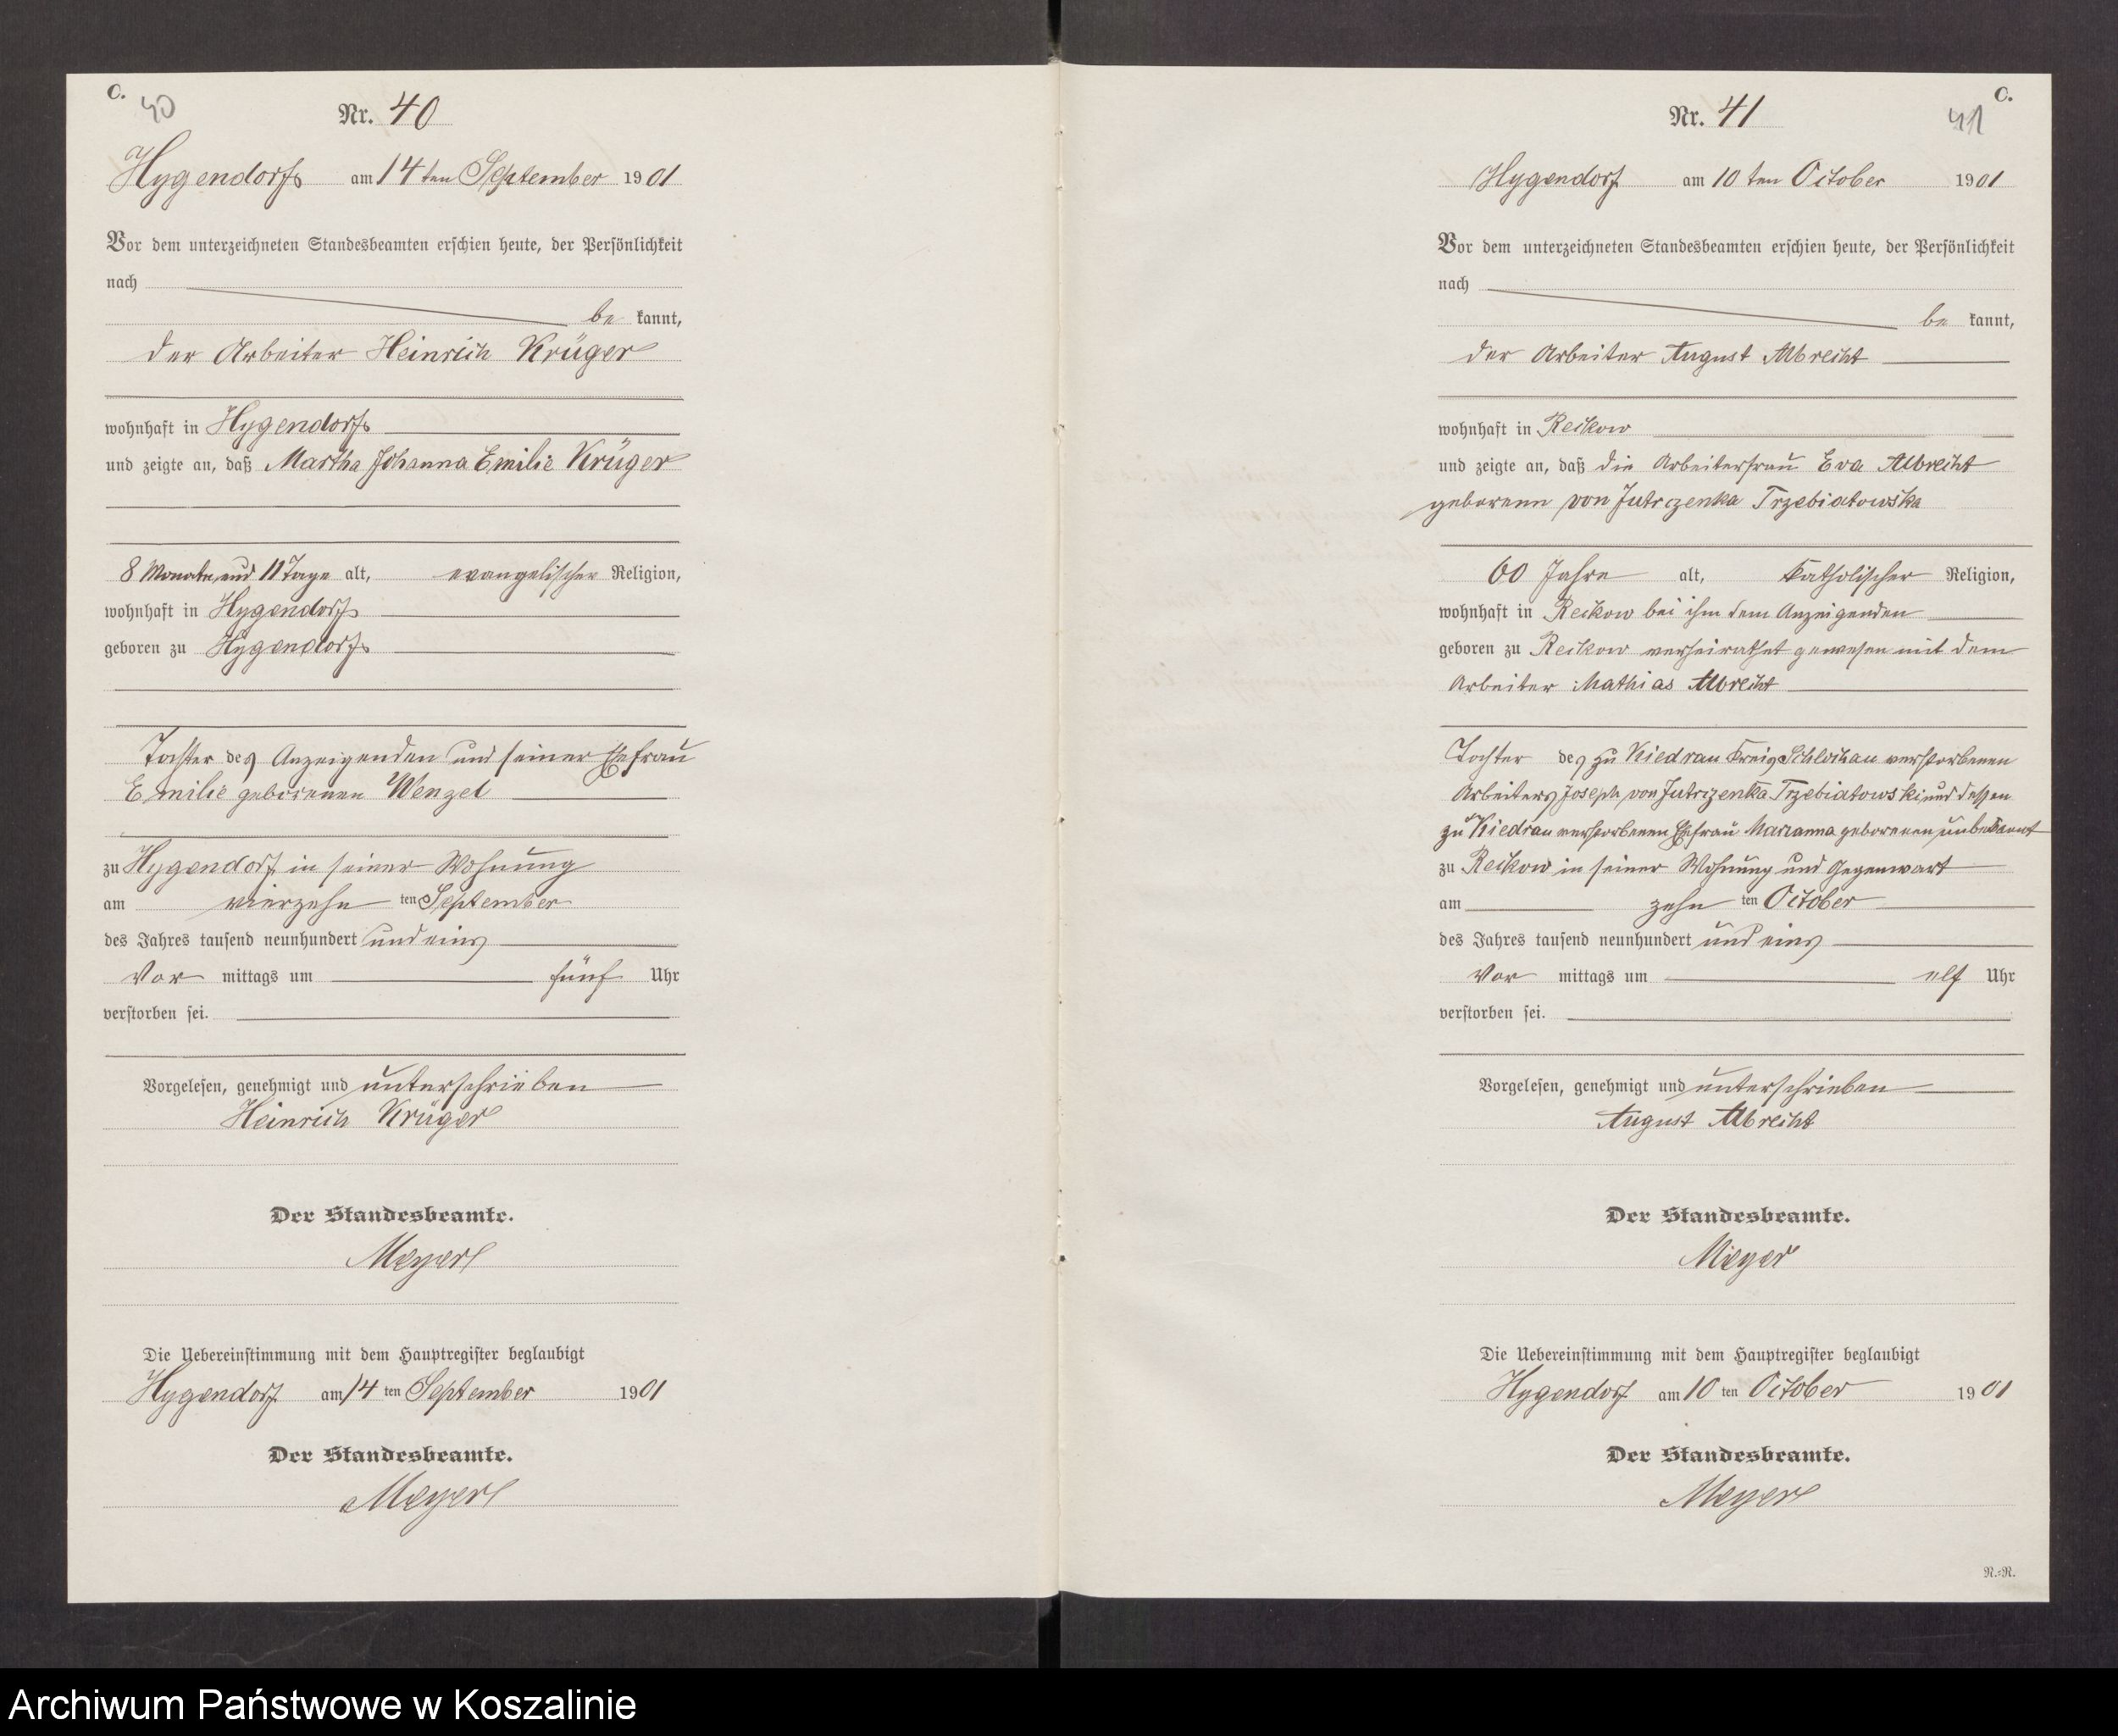 C.
40
Nr. 40
Hygendorf am 14 ten September 1901
Vor dem unterzeichneten Standesbeamten erschien heute, der Persönlichkeit
nach
be kannt,
der Arbeiter Heinrich Krüger
wohnhaft in Hygendorf
und zeigte an, daß Martha Johanna Emilie Krüger
8 Monate und 11 Tage alt, evangelischer Religion,
wohnhaft in Hygendorf
geboren zu Hygendorf
Tochter des Anzeigenden und seiner Ehefrau
Emilie geborenen Wenzel
zu Hygendorf in seiner Wohnung
am vierzehn ten September
des Jahres tausend neunhundert und eins
Vor mittags um fünf Uhr
verstorben sei.
Vorgelesen, genehmigt und unterschrieben
Heinrich Krüger
Der Standesbeamte.
Meyer
Die Uebereinstimmung mit dem Hauptregister beglaubigt
Hygendorf am 14 ten September 1901
Der Standesbeamte.
Meyer
C.
41
Nr. 41
Hygendorf am 10 ten October 1901
Vor dem unterzeichneten Standesbeamten erschien heute, der Persönlichkeit
nach
be kannt,
der Arbeiter August Albrecht
wohnhaft in Reckow
und zeigte an, daß die Arbeiterfrau Eva Albrecht
geborene von Jutrczenka Trzebiatowska
60 Jahre alt, katholischer Religion,
wohnhaft in Reckow bei ihm dem Anzeigenden
geboren zu Reckow verheirathet gewesen mit dem
Arbeiter Mathias Albrecht
Tochter des zu Kiedrau Kreis Schlochau verstorbenen
Arbeiters Joseph von Jutrczenka Trzebiatowski und dessen
zu Kiedrau verstorbenen Ehefrau Marianna geborenen unbekannt
zu Reckow in seiner Wohnung und Gegenwart
am zehn ten October
des Jahres tausend neunhundert und eins
Vor mittags um elf Uhr
verstorben sei.
Vorgelesen, genehmigt und unterschrieben
August Albrecht
Der Standesbeamte.
Meyer
Die Uebereinstimmung mit dem Hauptregister beglaubigt
Hygendorf am 10 ten October 1901
Der Standesbeamte.
Meyer
N.=N.
Archiwum Państwowe w Koszalinie